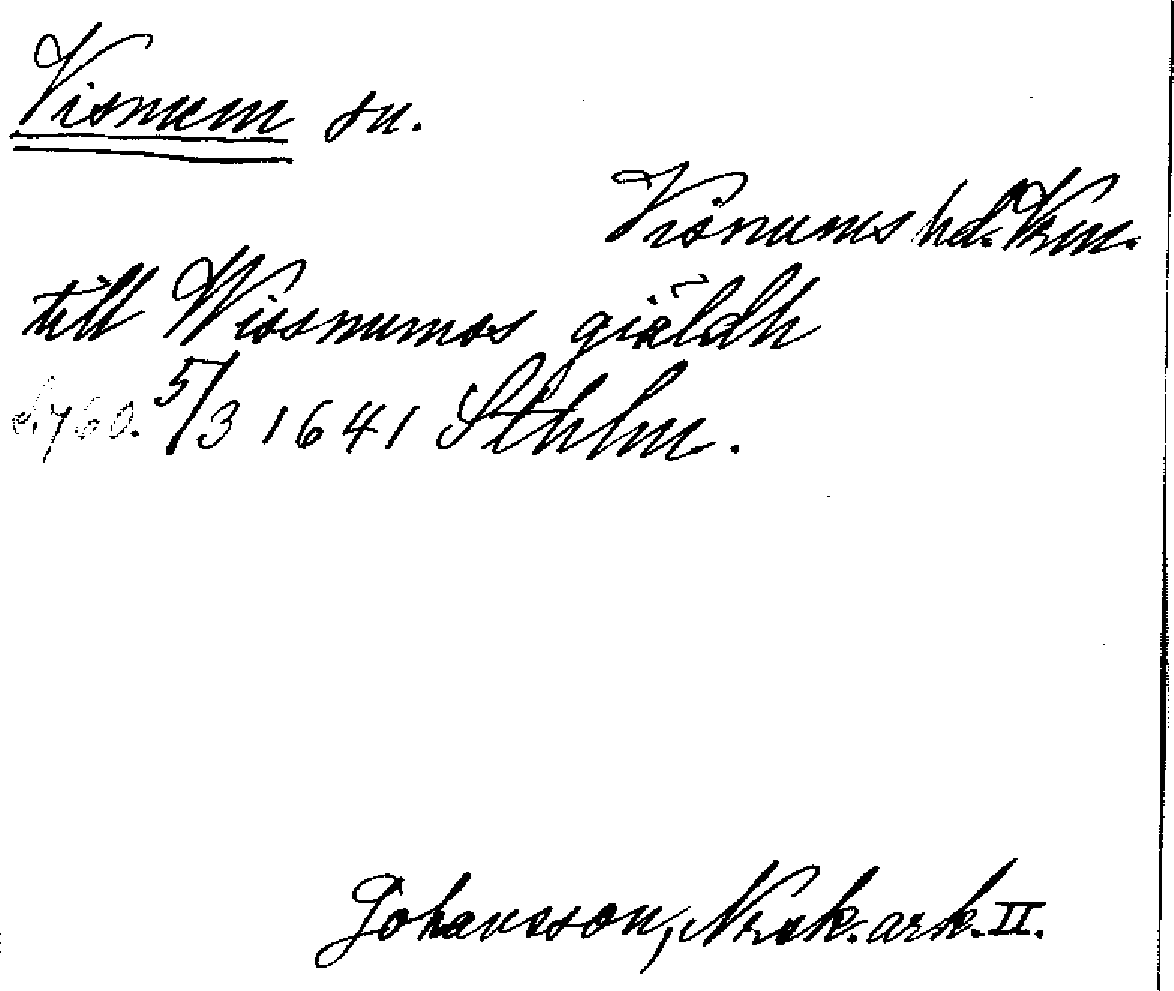 Visnum sn.
Visnums hd. Vrm.
till Wissnumss giäldh
S. 760. 5/3 1641 Sthlm.
Johansson, Norsk. ark. II.